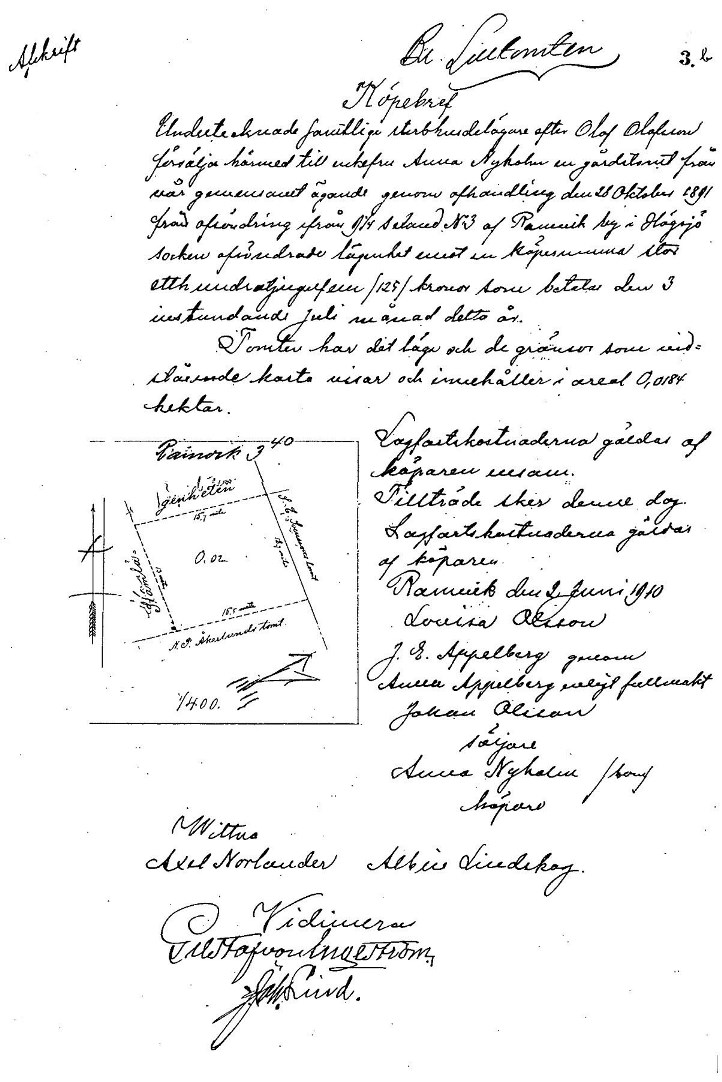 Afskrift
Bil. Lilltomten
3. b
Köpebref
Undertecknade samtlige sterbhusdelägare efter Olof Olofsson
försälja härmed till enkefru Anna Nyholm en gårdstomt från
vår gemensamt ägande genom afhandling den 28 Oktober 1891
från afsöndring ifrån 9/4 seland No 3 af Ramvik by i Högsjö
socken afsöndrade lägenhet emot en köpesumma stor
etthundratjugufem /125/ kronor som betalas den 3
instundande Juli månad detta år.
Tomten har det läge och de gränsor som vid-
stående karta visar och innehåller i areal 0,0184
hektar.
Ramvik 3 40
lägenheten
15,7 mtr
0.02
Hemlä-
12 mtr
15,5 mtr
N. P. Åkerlunds tomt
tomt
1/400.
Lagfartskostnaderna gäldas af
köparen ensam.
Tillträde sker denne dag
Lagfartskostnaderna gäldas
af köparen
Ramvik den 2 Juni 1910
Lovisa Olsson
J. E. Appelberg genom
Anna Appelberg enligt fullmakt
Johan Olsson
säljare
Anna Nyholm
köpare
Wittna
Axel Norlander Albin Lindskog.
Vidimera
Gustaf von Engeström,
Joh. Lind.